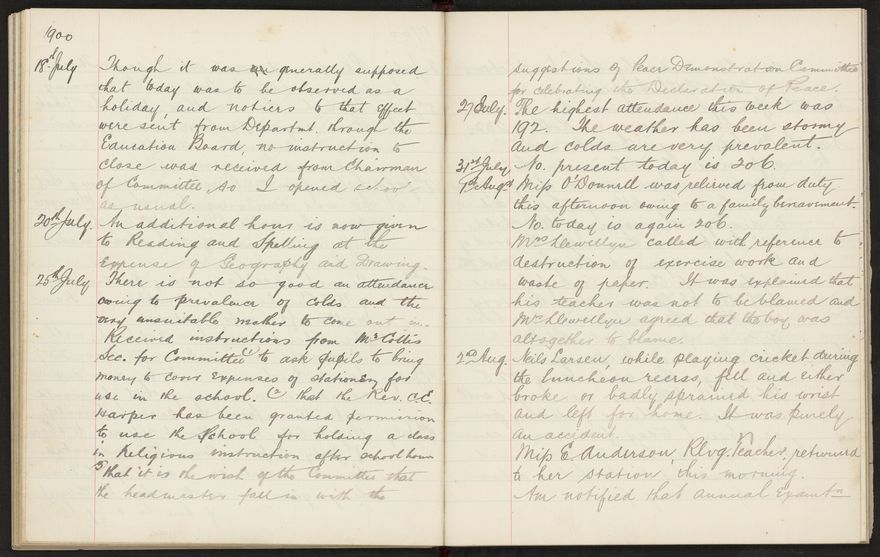 1900
18th July Though it was generally supposed
that today was to be observed as a
holiday, and notices to that effect
were sent from Departmt. through the
Education Board, no instruction to
close was received from Chairman
of Committee so I opened school
as usual.
20th July. An additional hour is now given
to Reading and Spelling at the
expense of Geography and Drawing.
25th July There is not so good an attendance
owing to prevalence of colds and the
very unsuitable weather to come out in.
Received instructions from Mr
Sec. for Committee (1 to ask pupils to bring
money to cover expenses of stationery for
use in the school. (2 that the Rev. C.E.
Harper has been granted permission
to use the School for holding a class
in Religious instruction after school hours
3) that it is the wish of the Committee that
the headmaster fall in with the
suggestions of Peace Demonstration Committee
for celebrating the Declaration of Peace.
27 July. The highest attendance this week was
192. The weather has been stormy
and colds are very prevalent.
31st July No. present today is 206.
1st Augst Miss O'Donnell was relieved from duty
this afternoon owing to a family bereavement.
No. today is again 206.
Mrs Llewellyn called with reference to
destruction of exercise work and
waste of paper. It was explained that
his teacher was not to be blamed and
Mrs Llewellyn agreed that the boy was
altogether to blame.
2nd Aug. Neils Larsen, while playing cricket during
the luncheon recess, fell and either
broke or badly sprained his wrist
and left for home. It was purely
an accident.
Miss E. Anderson, Rlvg. Teacher, returned
to her station this morning.
Am notified that annual Examtn